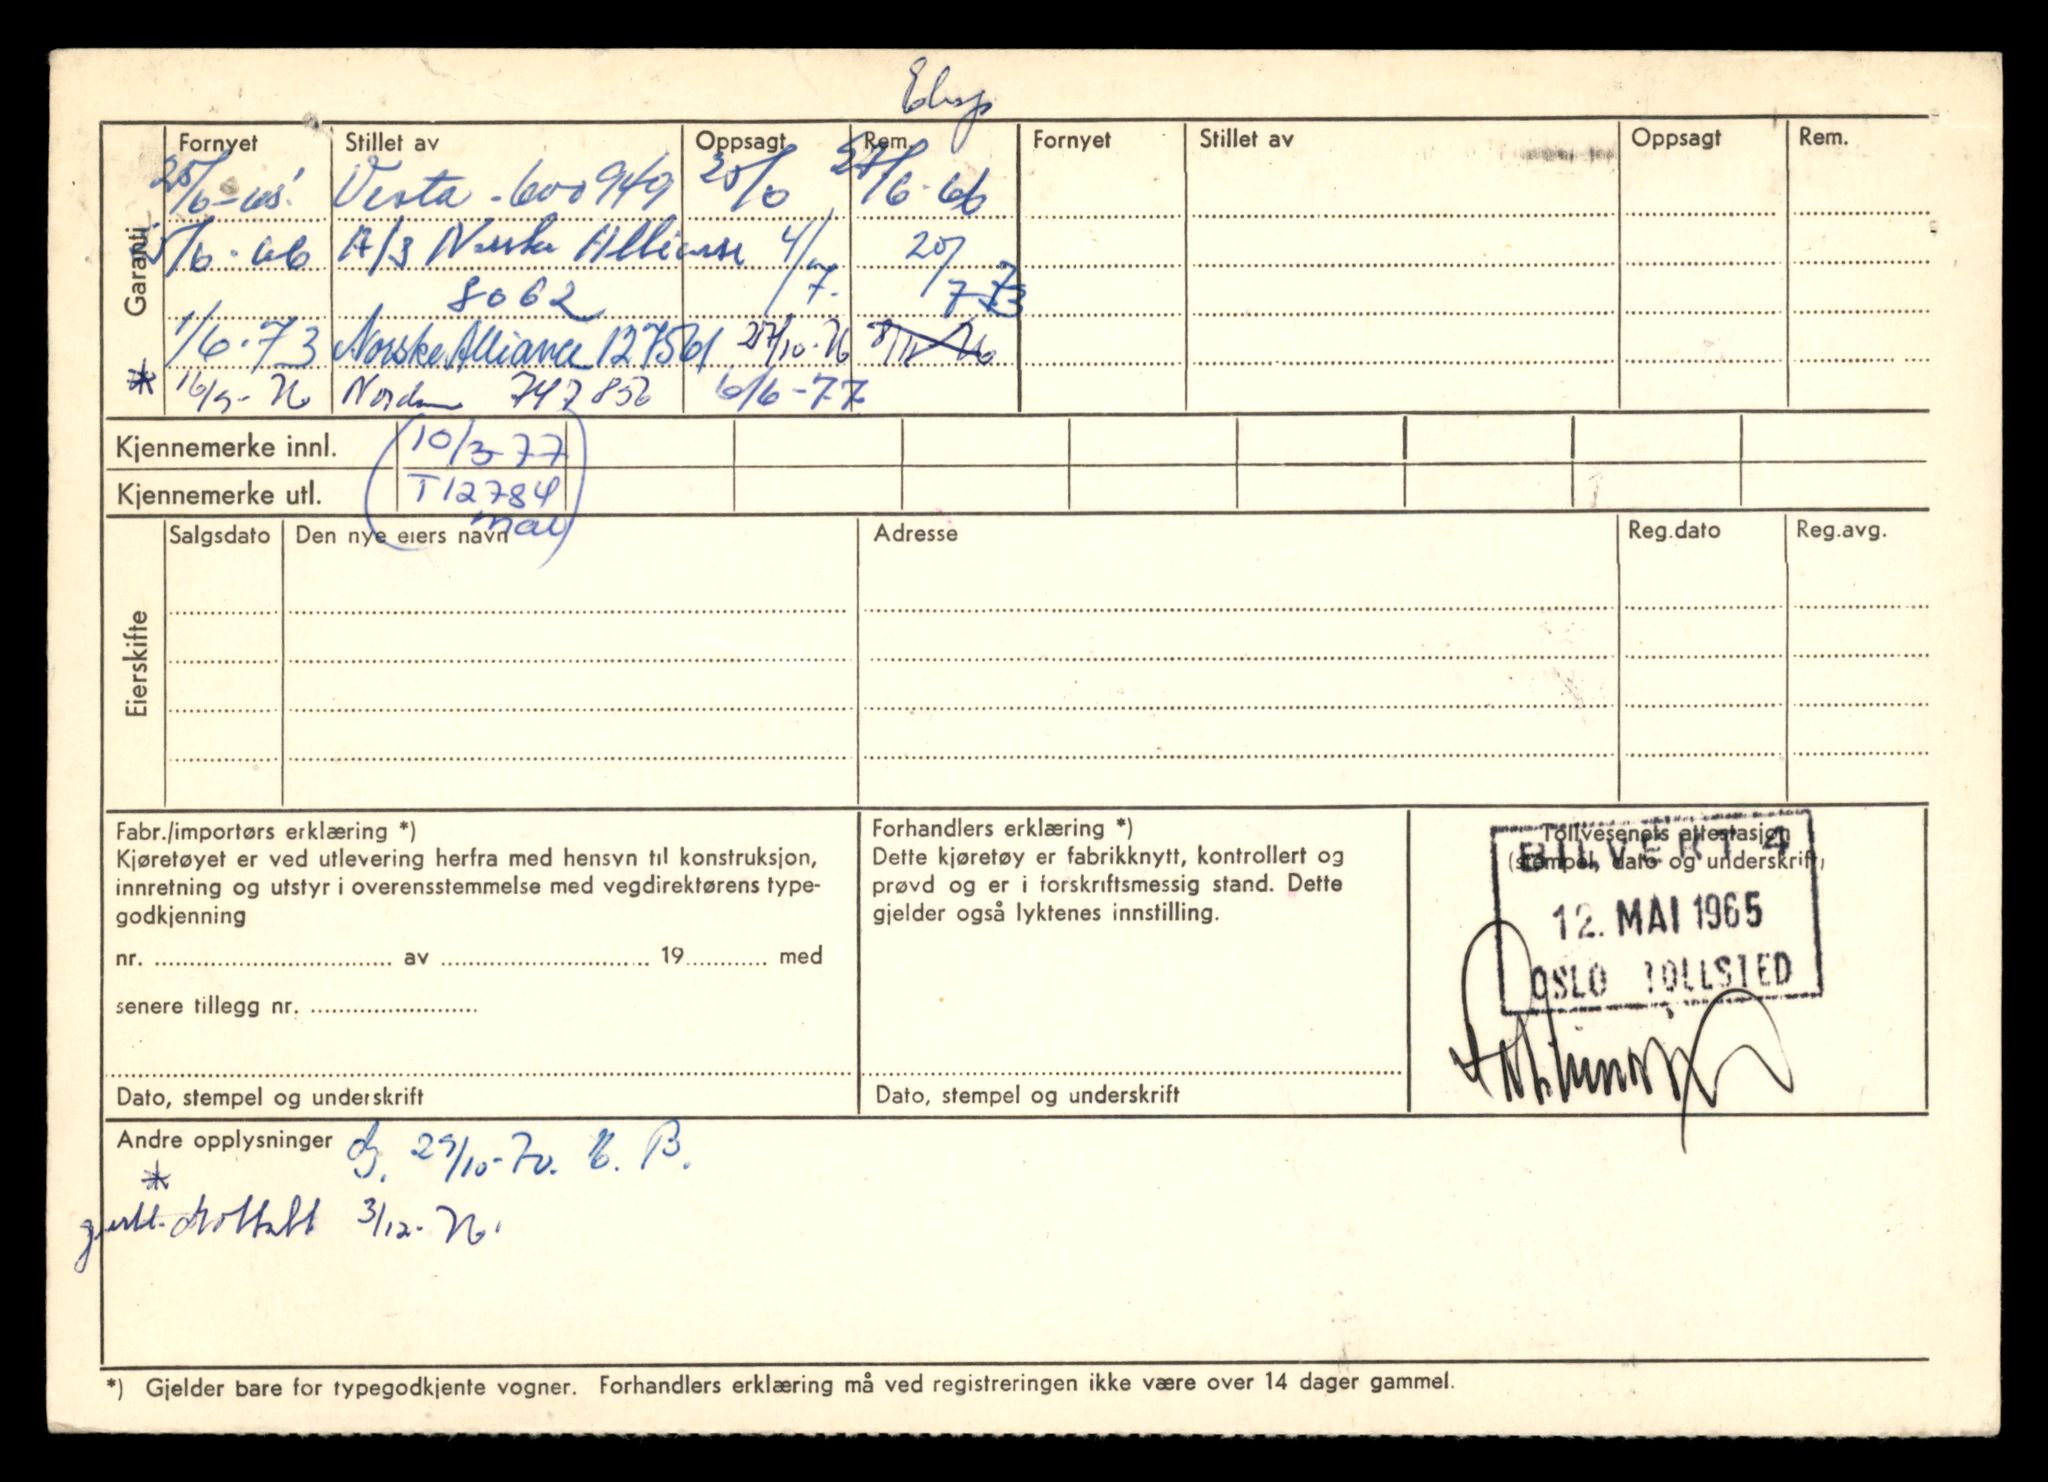 Fornyet Stillet av Oppsagt Rem. Fornyet Stillet av Oppsagt Rem.
Garanti
Vesta - 600949 27/6-66
/6-66 A/S Norske Alliance 4/7. 20/7-73
8062
1/6-73 Norske Alliance 127561 27/10-76
* 16/9-76 Norden 747856 6/6-77
Kjennemerke innl. 10/3-77
Kjennemerke utl. T12784
Eierskifte
Salgsdato Den nye eiers navn Adresse Reg.dato Reg.avg.
Fabr./importørs erklæring *)
Kjøretøyet er ved utlevering herfra med hensyn til konstruksjon,
innretning og utstyr i overensstemmelse med vegdirektørens type-
godkjenning
nr. av 19 med
senere tillegg nr.
Dato, stempel og underskrift
Forhandlers erklæring *)
Dette kjøretøy er fabrikknytt, kontrollert og
prøvd og er i forskriftsmessig stand. Dette
gjelder også lyktenes innstilling.
Dato, stempel og underskrift
Tollvesenets attestasjon
(stempel, dato og underskrift)
BILVERT 4
12. MAI 1965
OSLO TOLLSTED
Andre opplysninger 29/10-70. B.
*
3/12-76.
*) Gjelder bare for typegodkjente vogner. Forhandlers erklæring må ved registreringen ikke være over 14 dager gammel.